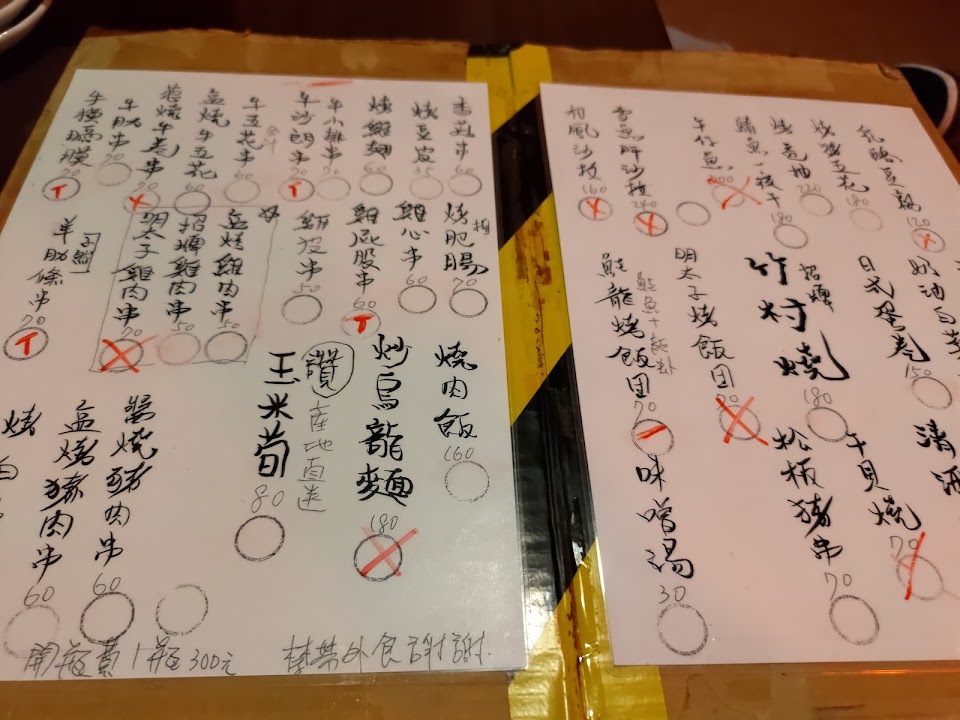 香菇串 60
烤豆皮 35
烤雞翅 60
牛小排串
牛沙朗串 70
牛五花串 60
盐燒牛五花 60
蔥燒牛卷串 70
牛肋串 70
牛橫膈膜 70
烤肥腸 70
雞心串 60
雞屁股串 60
雞皮串 50
盐烤雞肉串 50
招牌雞肉串 50
明太子雞肉串 70
羊肋條串 70
燒肉飯 160
炒烏龍麵 180
讚 產地直送
玉米荀 80
醬燒豬肉串 60
盐烤豬肉串 60
烤白
開瓶費1瓶300元 禁帶外食謝謝.
乳酪豆腐 120
烤豬五花 180
烤透抽 220
鯖魚一夜干 180
200
沙拉 240
和風沙拉 160
奶油白菜
日式蛋卷 150
招牌
竹村燒 180
明太子烤飯团 70
鮭龍烤飯团 70
清酒
干貝燒 70
松板豬串 70
味噌湯 30